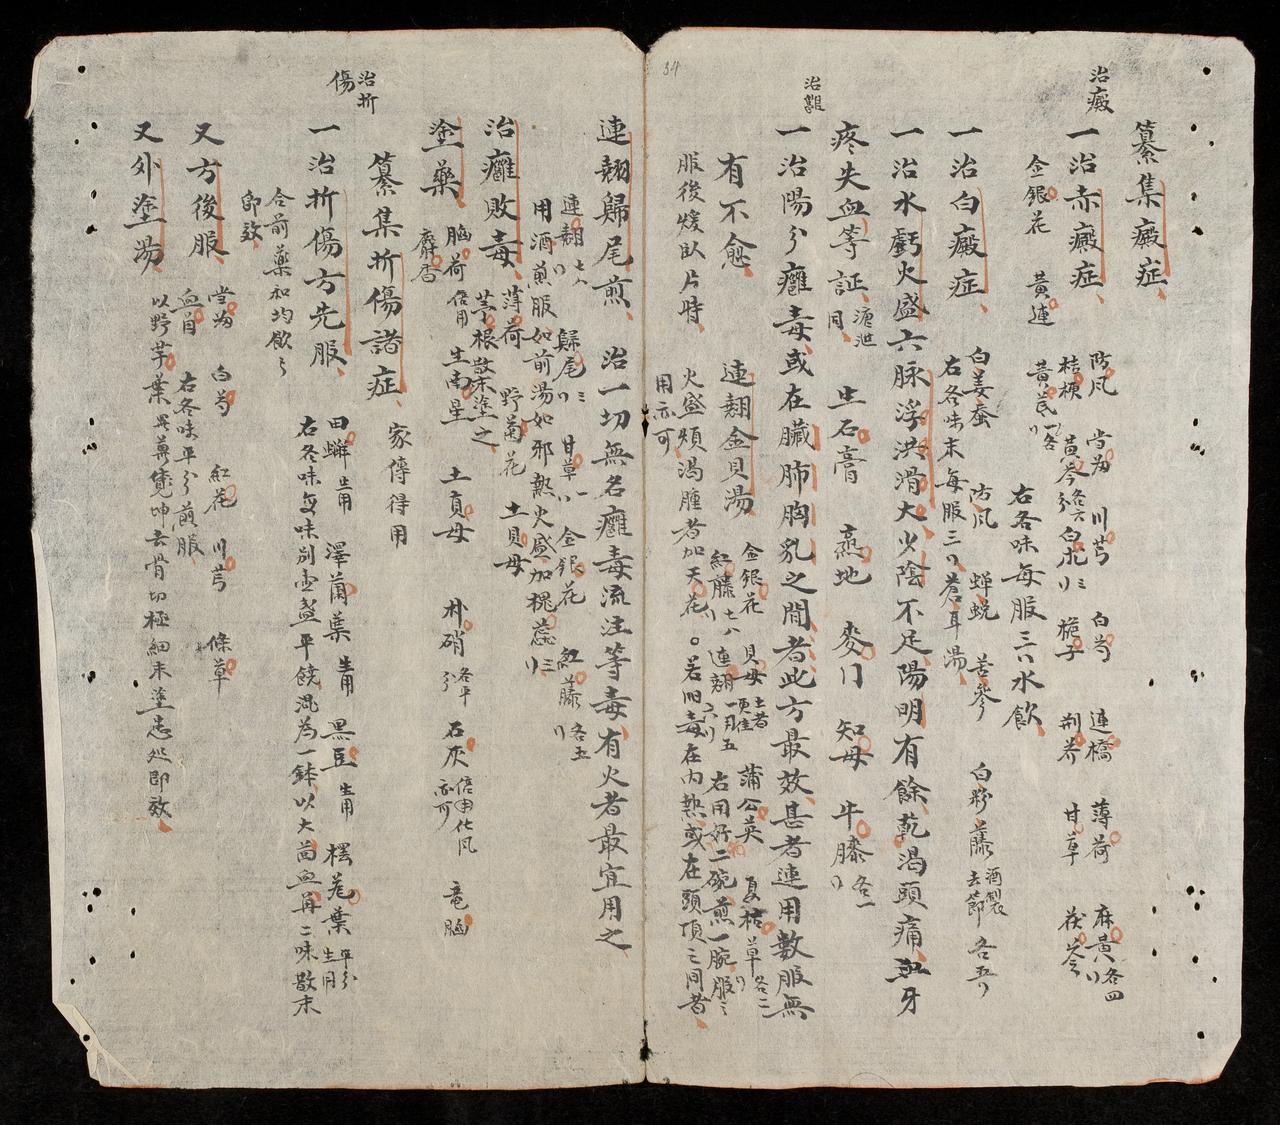 治癜
纂集癜症
一治赤癜症
防風 當歸 川芎 白芍 連橋 薄荷 麻黃各四
桔梗 黃芩各六分 白朮 梔子 荆芥 甘草 茯苓
金銀花 黃連 黃芪
右各味每服三 水飲
一治白癜症
白姜蚕 防風 蟬蛻 苦參 白粉藤酒製去節 各五
右各味末每服三 蒼耳湯
一治水虧火盛六脉浮洪滑大少陰不足陽明有餘乾渴頭痛 牙
疼失血等証溏泄同 生石膏 熹地 麥門 知母 牛膝各一
治癰
一治陽分癰毒或在臟肺胸乳之間者此方最效甚者連用數服無
有不愈 連翹金貝湯
金銀花 貝母土者更佳 蒲公英 夏枯草各二
紅藤七八 連翹一两五 右用好二碗煎一腕服
服後煖臥片時 火盛煩渴腫者加天花 ○若 毒在内熱或在頭頂之间者
用亦可
34
連翹歸尾煎 治一切無名癰毒流注等毒有火者最宜用之
連翹七八 歸尾三 甘草一 金銀花 紅藤各五
用酒煎服如前湯如邪熱火盛加槐蕊三
治癰敗毒 薄荷 野菊花 土貝母
苧根散末塗之
塗藥 脑荷倍用 生南星 土貢母 朴硝各平分 石灰倍用化風亦可 竜腦
麝香
纂集折傷諸症 家傳得用
治折傷
一治折傷方先服
田蠏生用 澤蘭葉生用 黑豆生用 葉平分生用
右各味每味别壹盞平饒混為一鉢以大茴血再二味散末
合前藥和均飲之
即效
又方後服 當歸 白芍 紅花 川芎 條草
血茸 右各味平分煎服
又外塗湯 以野芋葉 去骨切極細末塗患処即效